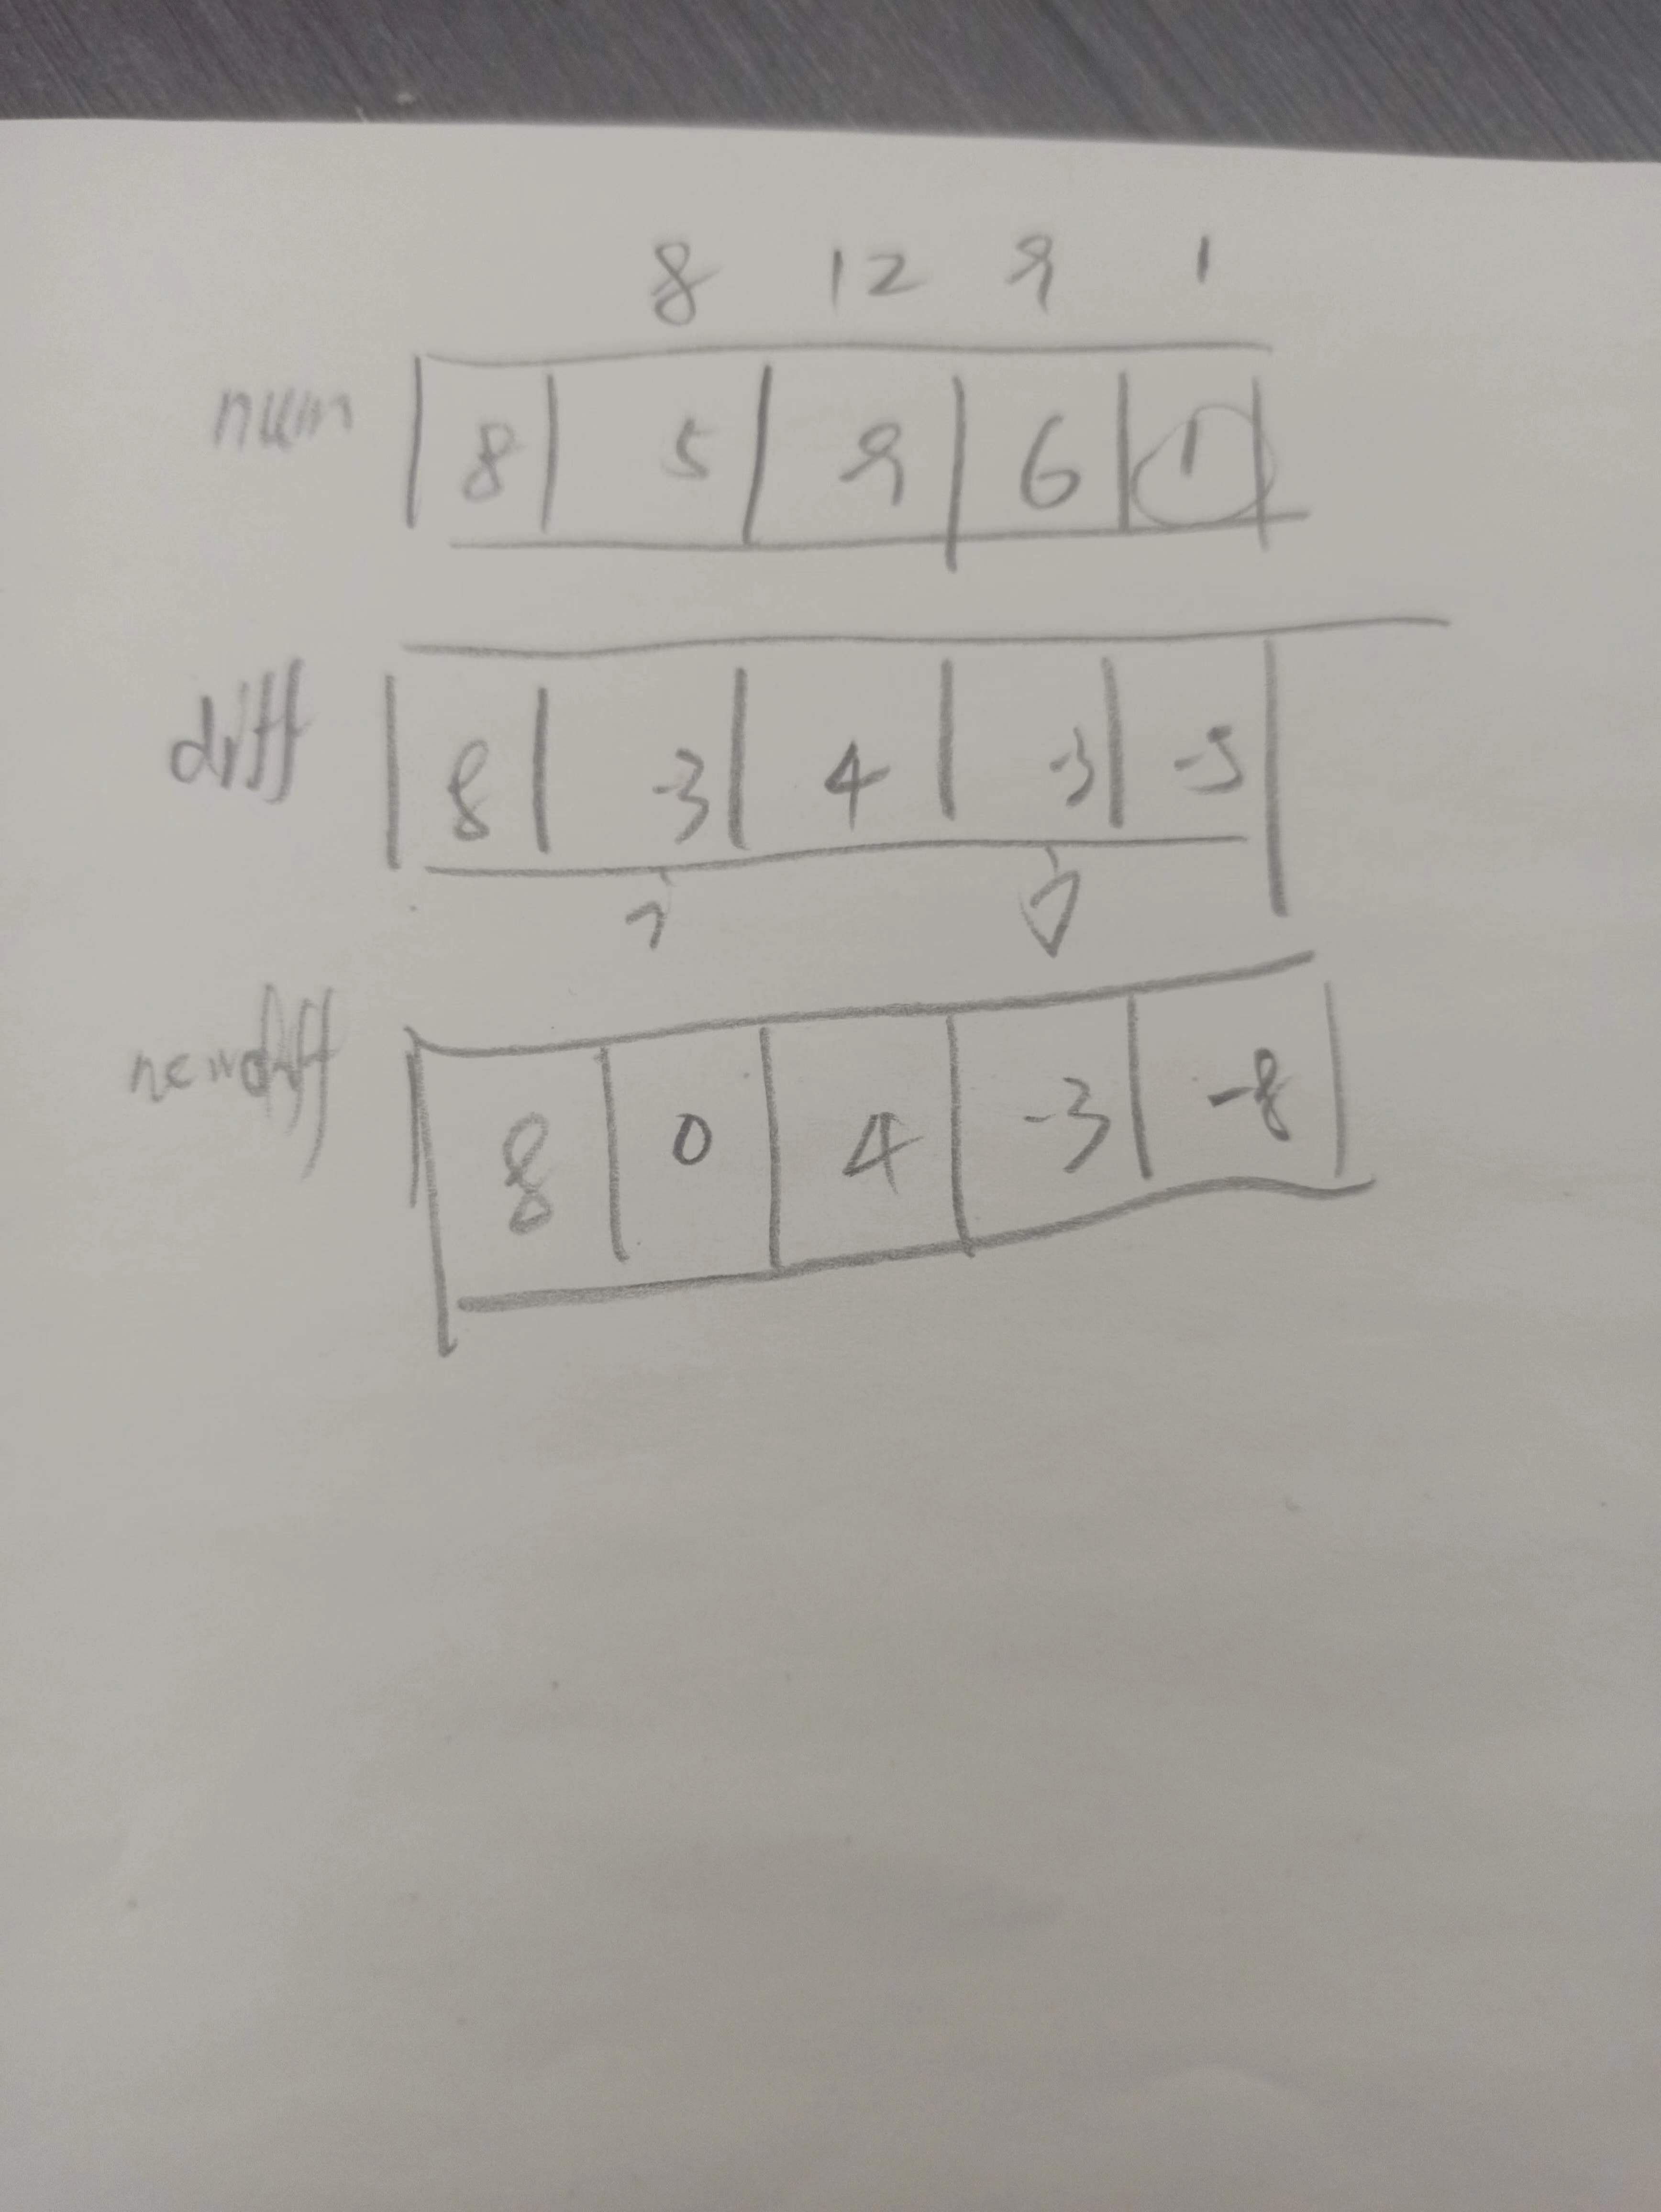 8 12 9 1
num 8 5 9 6 1
diff 8 -3 4 -3 -5
i j
newdiff 8 0 4 -3 -8